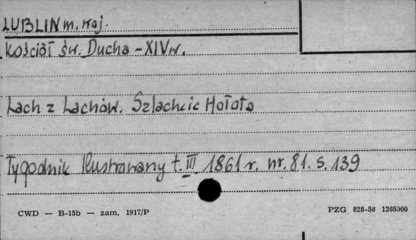 LUBLIN m. woj.
Kościół św. Ducha - XIV w.
Lach z Lachów. Szlachcic Hołota
Tygodnik Ilustrowany t. III 1861 r. nr. 81. s. 139
CWD — B-15b — zam. 1917/P
PZG 828-58 1265000